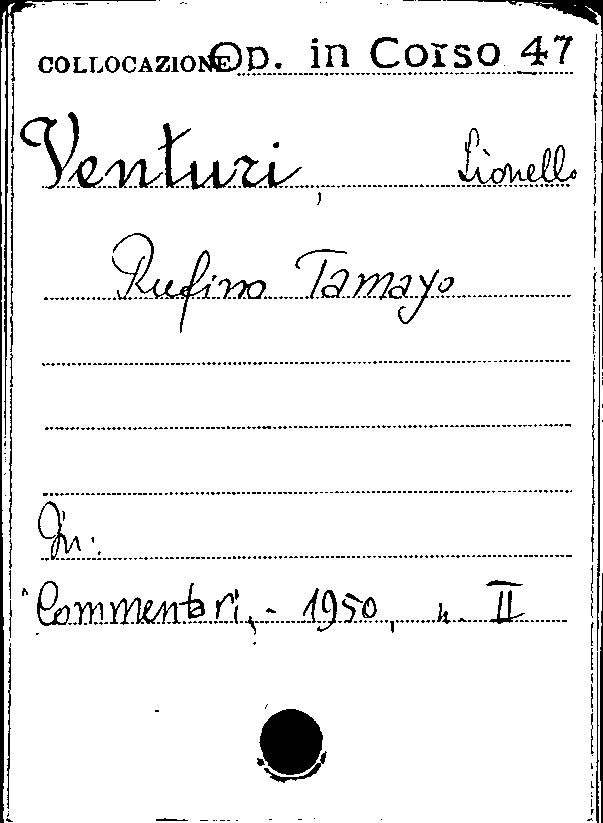 COLLOCAZIONE Op. in Corso 47
Venturi, Lionello
Rufino Tamayo
In:
Commentari, - 1950, n. II